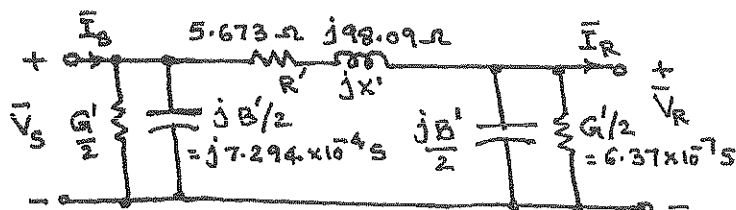 5.673Ω j98.09Ω
ĪS ĪR
+ R' jX' +
V̄S G'/2 jB'/2 = j7.294×10⁻⁴ S jB'/2 G'/2 = 6.37×10⁻⁷ S V̄R
- -